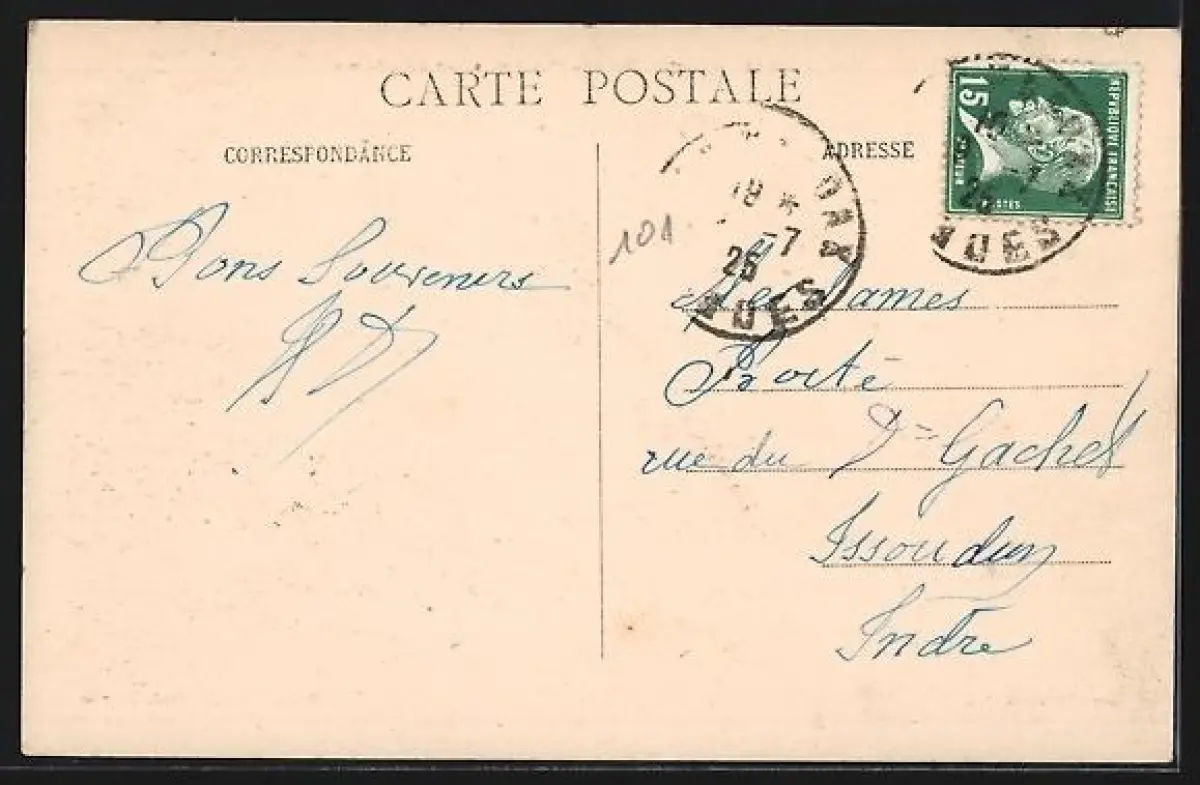 CARTE POSTALE
CORRESPONDANCE
ADRESSE
Bons Souvenirs
101
18 *
-7
25
15
REPVBLIQVE FRANÇAISE
PASTEUR
POSTES
Mesdames
Proité
rue du Dr Gachet
Issoudun
Indre